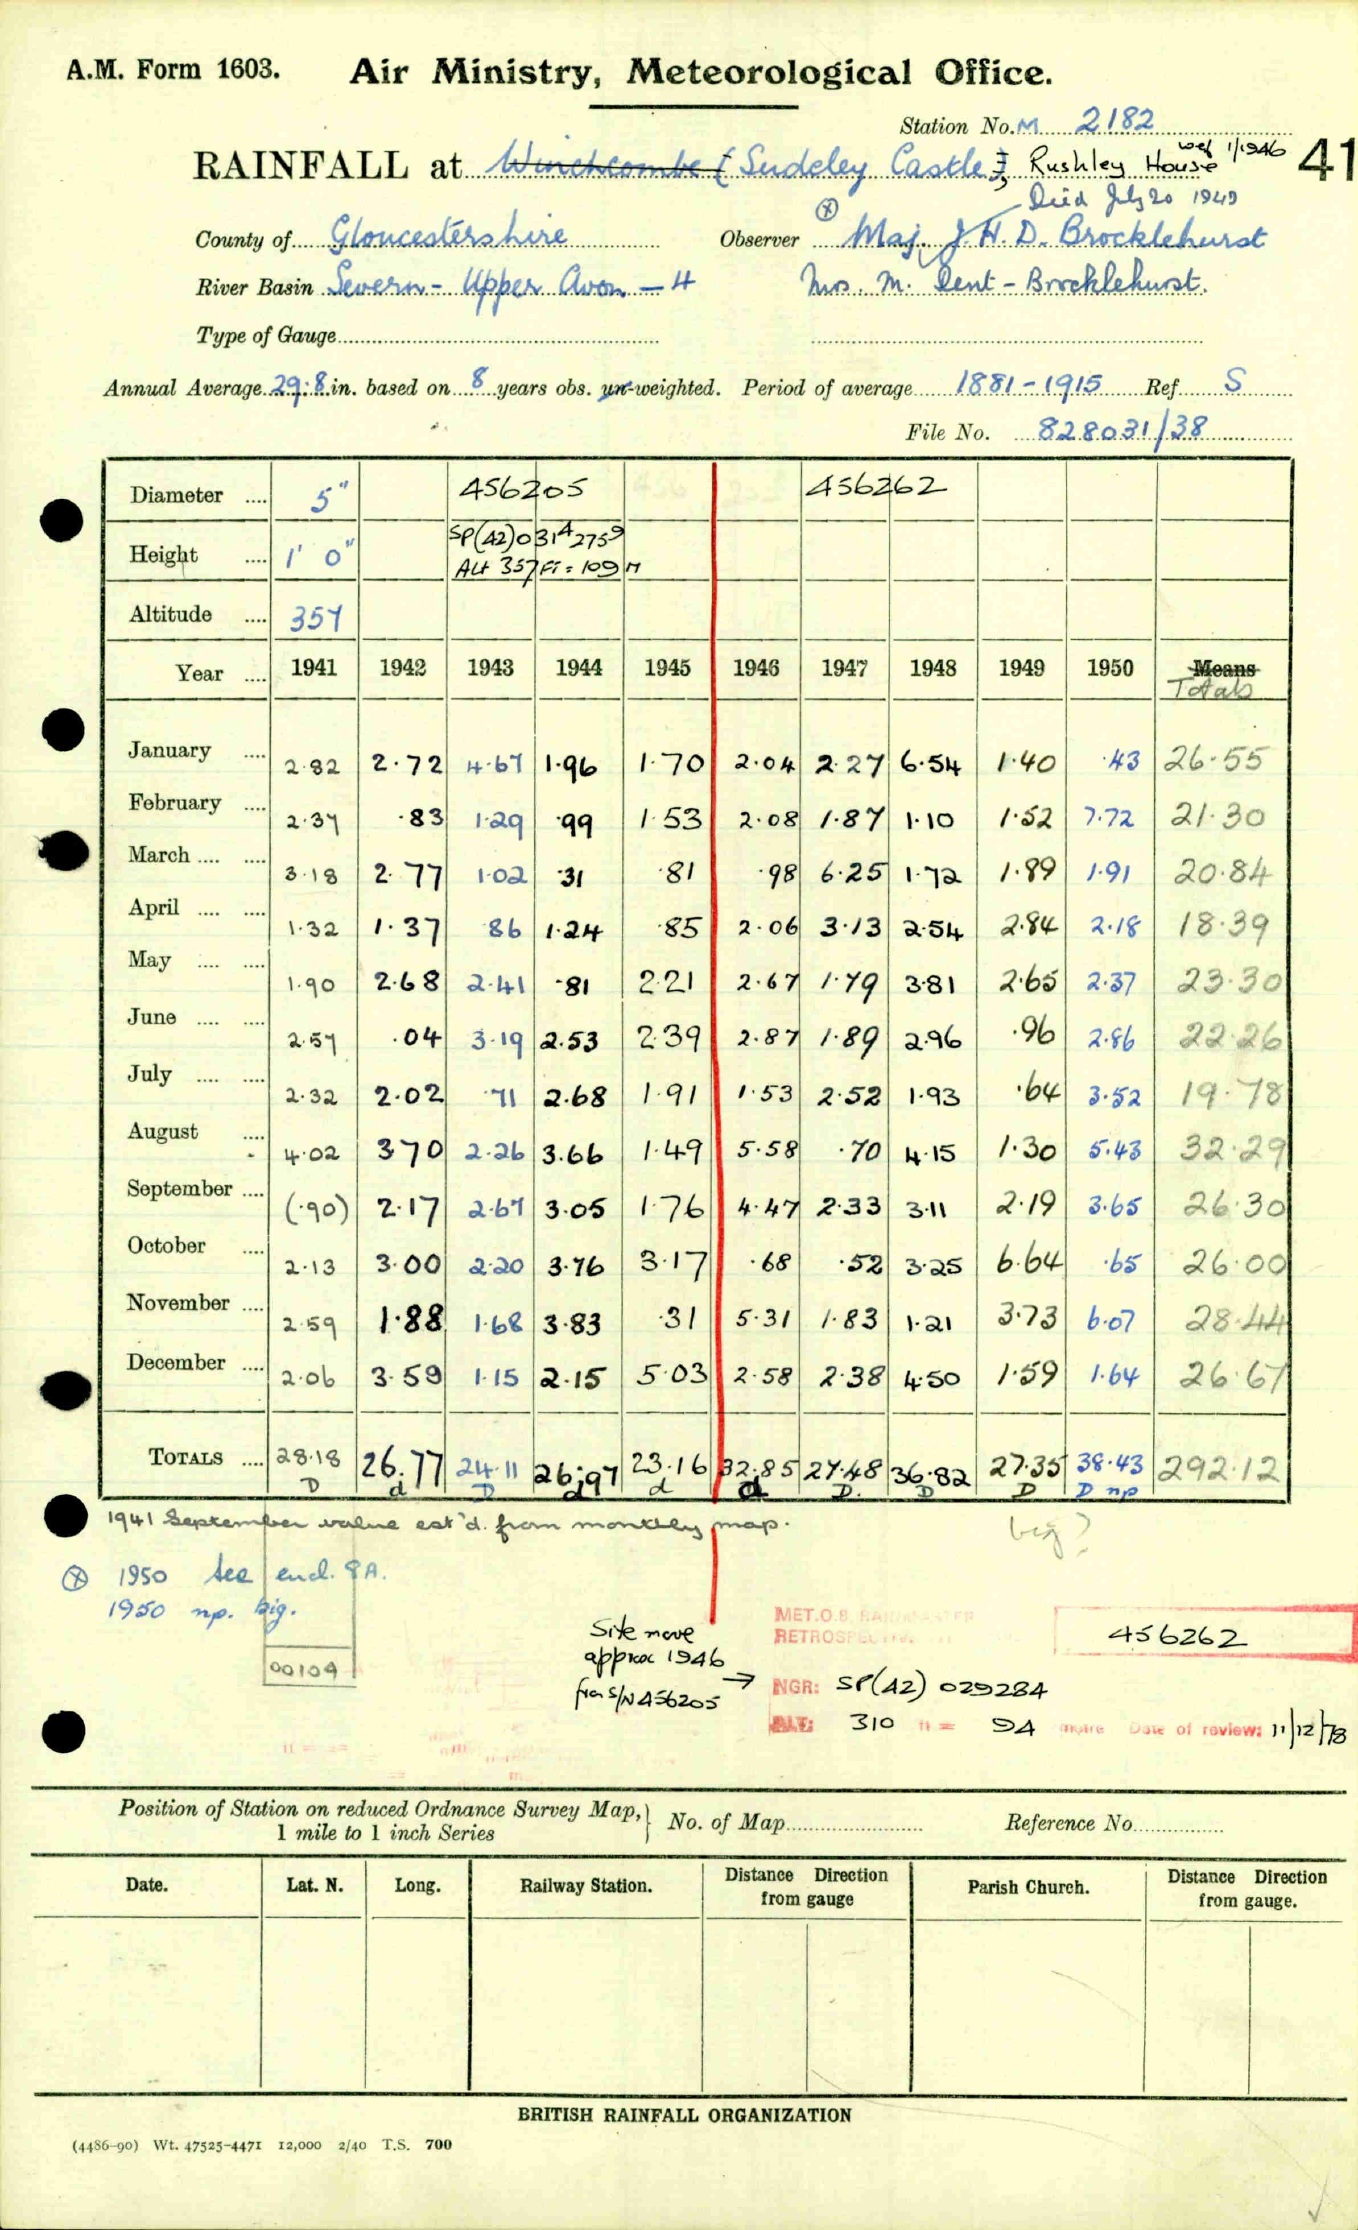 A.M. Form 1603. Air Ministry, Meteorological Office.
Station No. M 2182
RAINFALL at Winchcombe ( Sudeley Castle ), Rushley House wef 1/1946 41
Died July 20 1949
County of Gloucestershire Observer Maj. J. H. D. Brocklehurst
River Basin Severn - Upper Avon - 4 Mrs. M. Dent - Brocklehurst.
Type of Gauge
Annual Average 29.8 in. based on 8 years obs. un-weighted. Period of average 1881-1915 Ref S
File No. 828031/38
Diameter .... 5" 456205 456262
Height .... 1' 0" SP(42)0314 2759
Alt 357 Ft = 109 M
Altitude .... 357
Year .... 1941 1942 1943 1944 1945 1946 1947 1948 1949 1950 Means
Totals
January .... 2.82 2.72 4.67 1.96 1.70 2.04 2.27 6.54 1.40 .43 26.55
February .... 2.37 .83 1.29 .99 1.53 2.08 1.87 1.10 1.52 7.72 21.30
March .... .... 3.18 2.77 1.02 .31 .81 .98 6.25 1.72 1.89 1.91 20.84
April .... .... 1.32 1.37 .86 1.24 .85 2.06 3.13 2.54 2.84 2.18 18.39
May .... .... 1.90 2.68 2.41 .81 2.21 2.67 1.79 3.81 2.65 2.37 23.30
June .... .... 2.57 .04 3.19 2.53 2.39 2.87 1.89 2.96 .96 2.86 22.26
July .... .... 2.32 2.02 .71 2.68 1.91 1.53 2.52 1.93 .64 3.52 19.78
August .... 4.02 3.70 2.26 3.66 1.49 5.58 .70 4.15 1.30 5.43 32.29
September .... (.90) 2.17 2.67 3.05 1.76 4.47 2.33 3.11 2.19 3.65 26.30
October .... 2.13 3.00 2.20 3.76 3.17 .68 .52 3.25 6.64 .65 26.00
November .... 2.59 1.88 1.68 3.83 .31 5.31 1.83 1.21 3.73 6.07 28.44
December .... 2.06 3.59 1.15 2.15 5.03 2.58 2.38 4.50 1.59 1.64 26.67
TOTALS .... 28.18 26.77 24.11 26.97 23.16 32.85 27.48 36.82 27.35 38.43 292.12
D d D d d d D. D D D np
1941 September value est'd. from monthly map. big?
1950 see encl. 9A.
1950 np. big.
00109
Site move
approx 1946
from S/N 456205
MET.O.8. RAINMASTER
RETROSPECTIVE
456262
NGR: SP(42) 029284
ALT: 310 ft = 94 metre Date of review: 11/12/78
Position of Station on reduced Ordnance Survey Map,
1 mile to 1 inch Series
No. of Map Reference No.
Date. Lat. N. Long. Railway Station. Distance Direction from gauge Parish Church. Distance Direction from gauge.
BRITISH RAINFALL ORGANIZATION
(4486-90) Wt. 47525-4471 12,000 2/40 T.S. 700